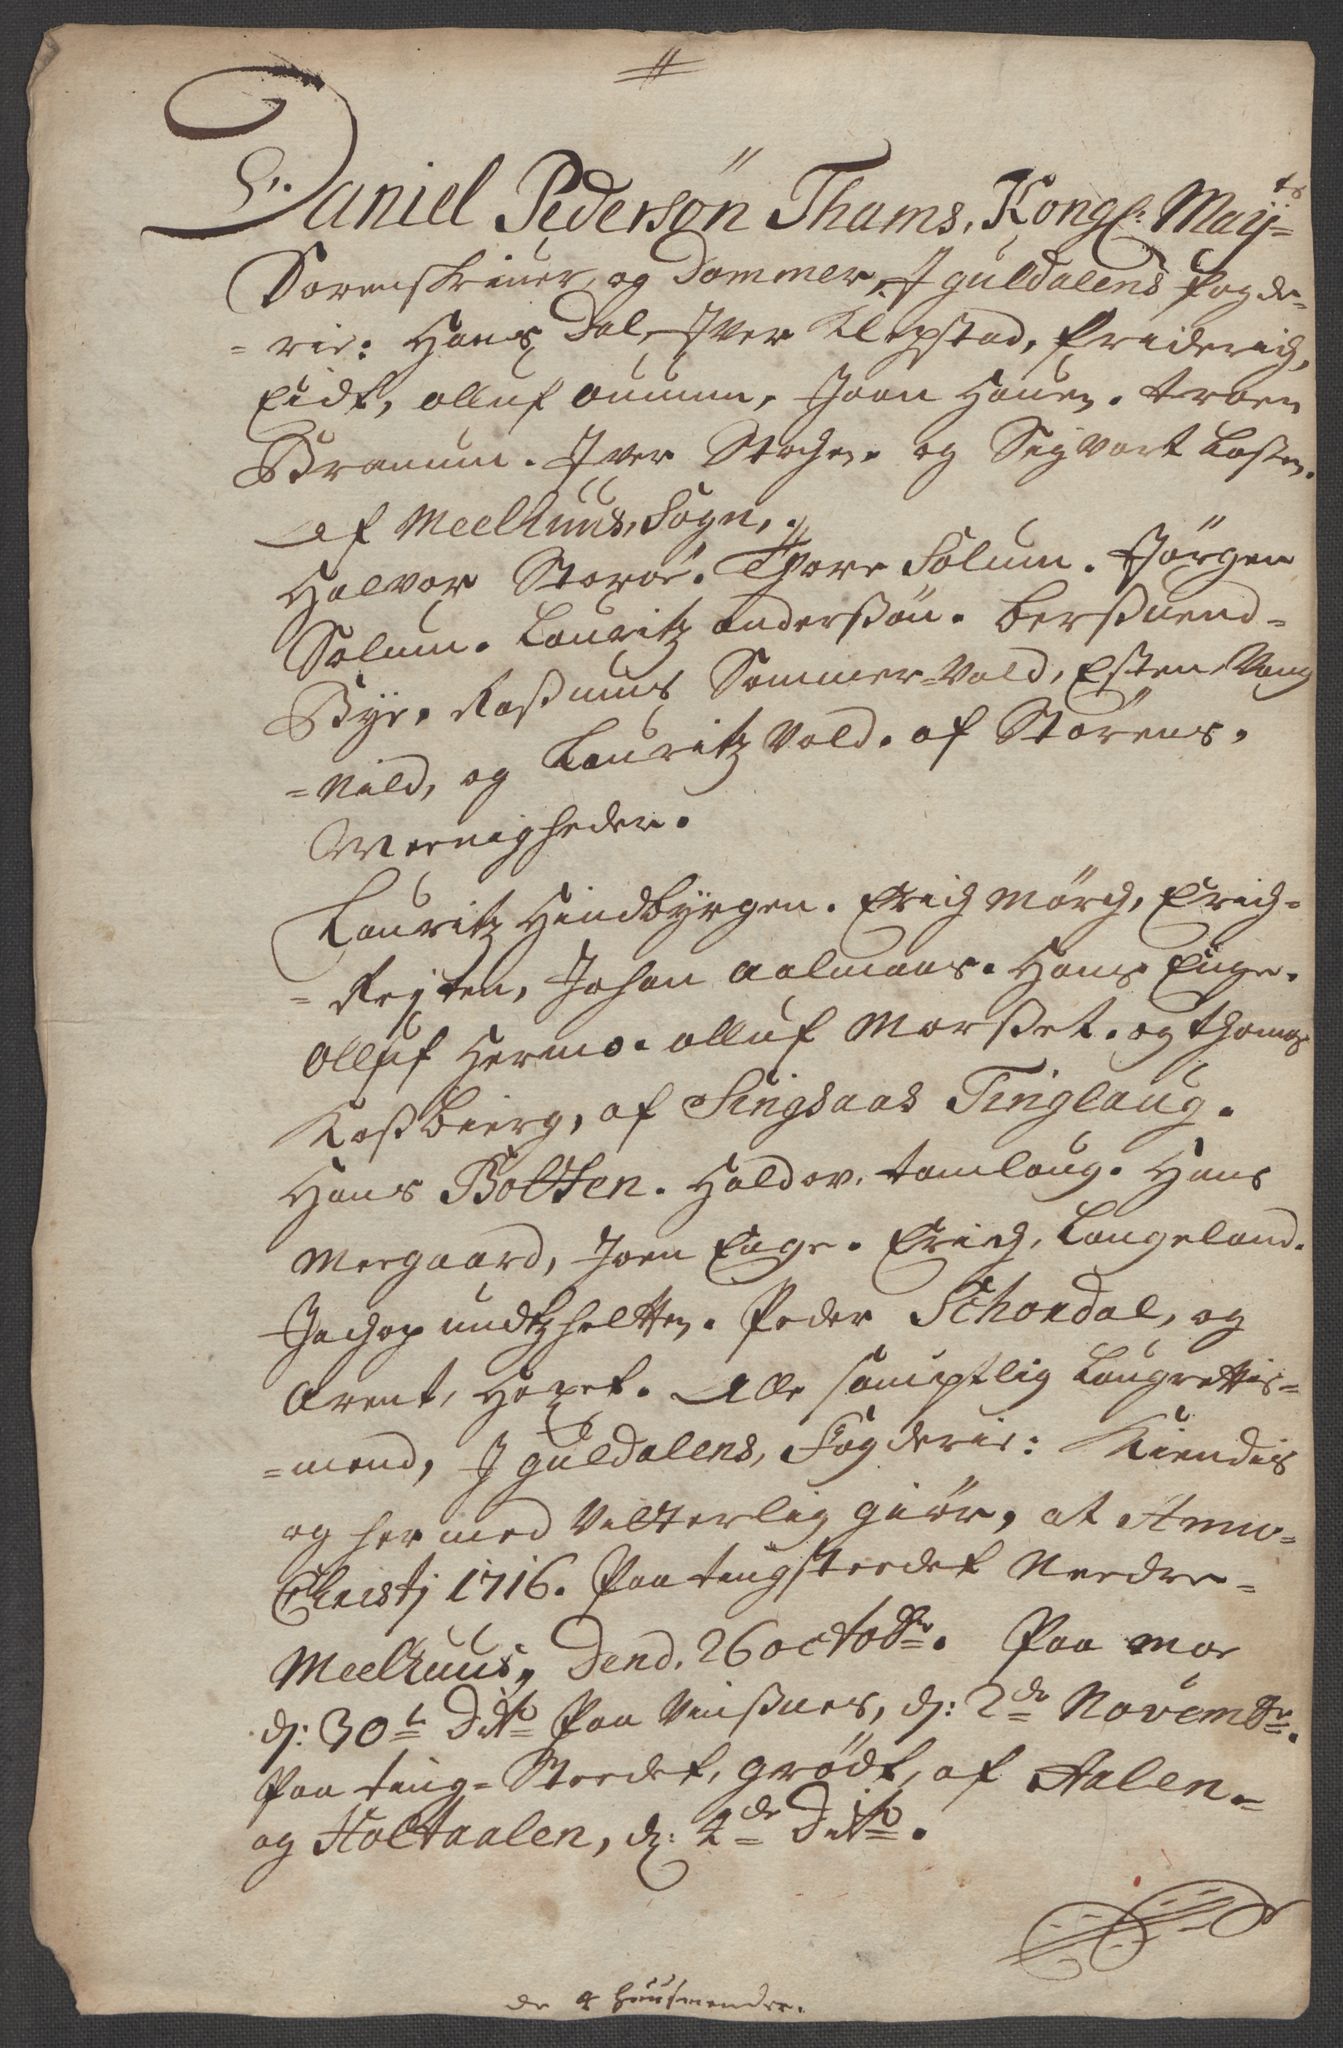 Daniel Pedersøn Thams, Kongl: Mayts
Sorenskriuer, og Dommer, J guldalens fogde-
-rie: Hans Dal, Jver Klepstad, friderich,
Eidt, olluf ouumm, Joen Houen. troen
Branum. Jver Stochen. og Sigvort Losen.
Af Meelhuus, Sogn,
Halvor Storøe. Thore Solum. Jørgen
Solum. Lauritz anderssøn. berssuend-
Bye. Rassmus Sommer-Vold, Esten Vong
-Nild, og Lauritz Vold. af Størens.
Meenigheder.
Lauritz Hindbyrgen. Erich Mørch, Erich-
-Reiten, Johan aalmaas. Hans Enge.
olluf Hermo. olluf Morsset. og Thomas
Kossbierg, af Singsaas Tinglaug.
Hans Boltten. Haldor, tamlaug. Hans
Meegaard, Joen Eage. Erich, Langeland.
Jachop undtzheltten. Peder Schondal, og
Arent, Hoxet. Alle samptlig Laugrettis-
-mend, J guldalens, Fogderie: Kiendis
og her med Vitterlig giør, at Anno-
Christj 1716. Paa tingsteedet Needre-
Meelhuus, Dend. 26 octobr. Paa moe
d: 30te Dito Paa Vinssnes, d: 2de Novembr.
Paa ting-Steedet, grødt, af Aalen-
og Holtaalen, d: 4de Dito.
de 4 huusmender.